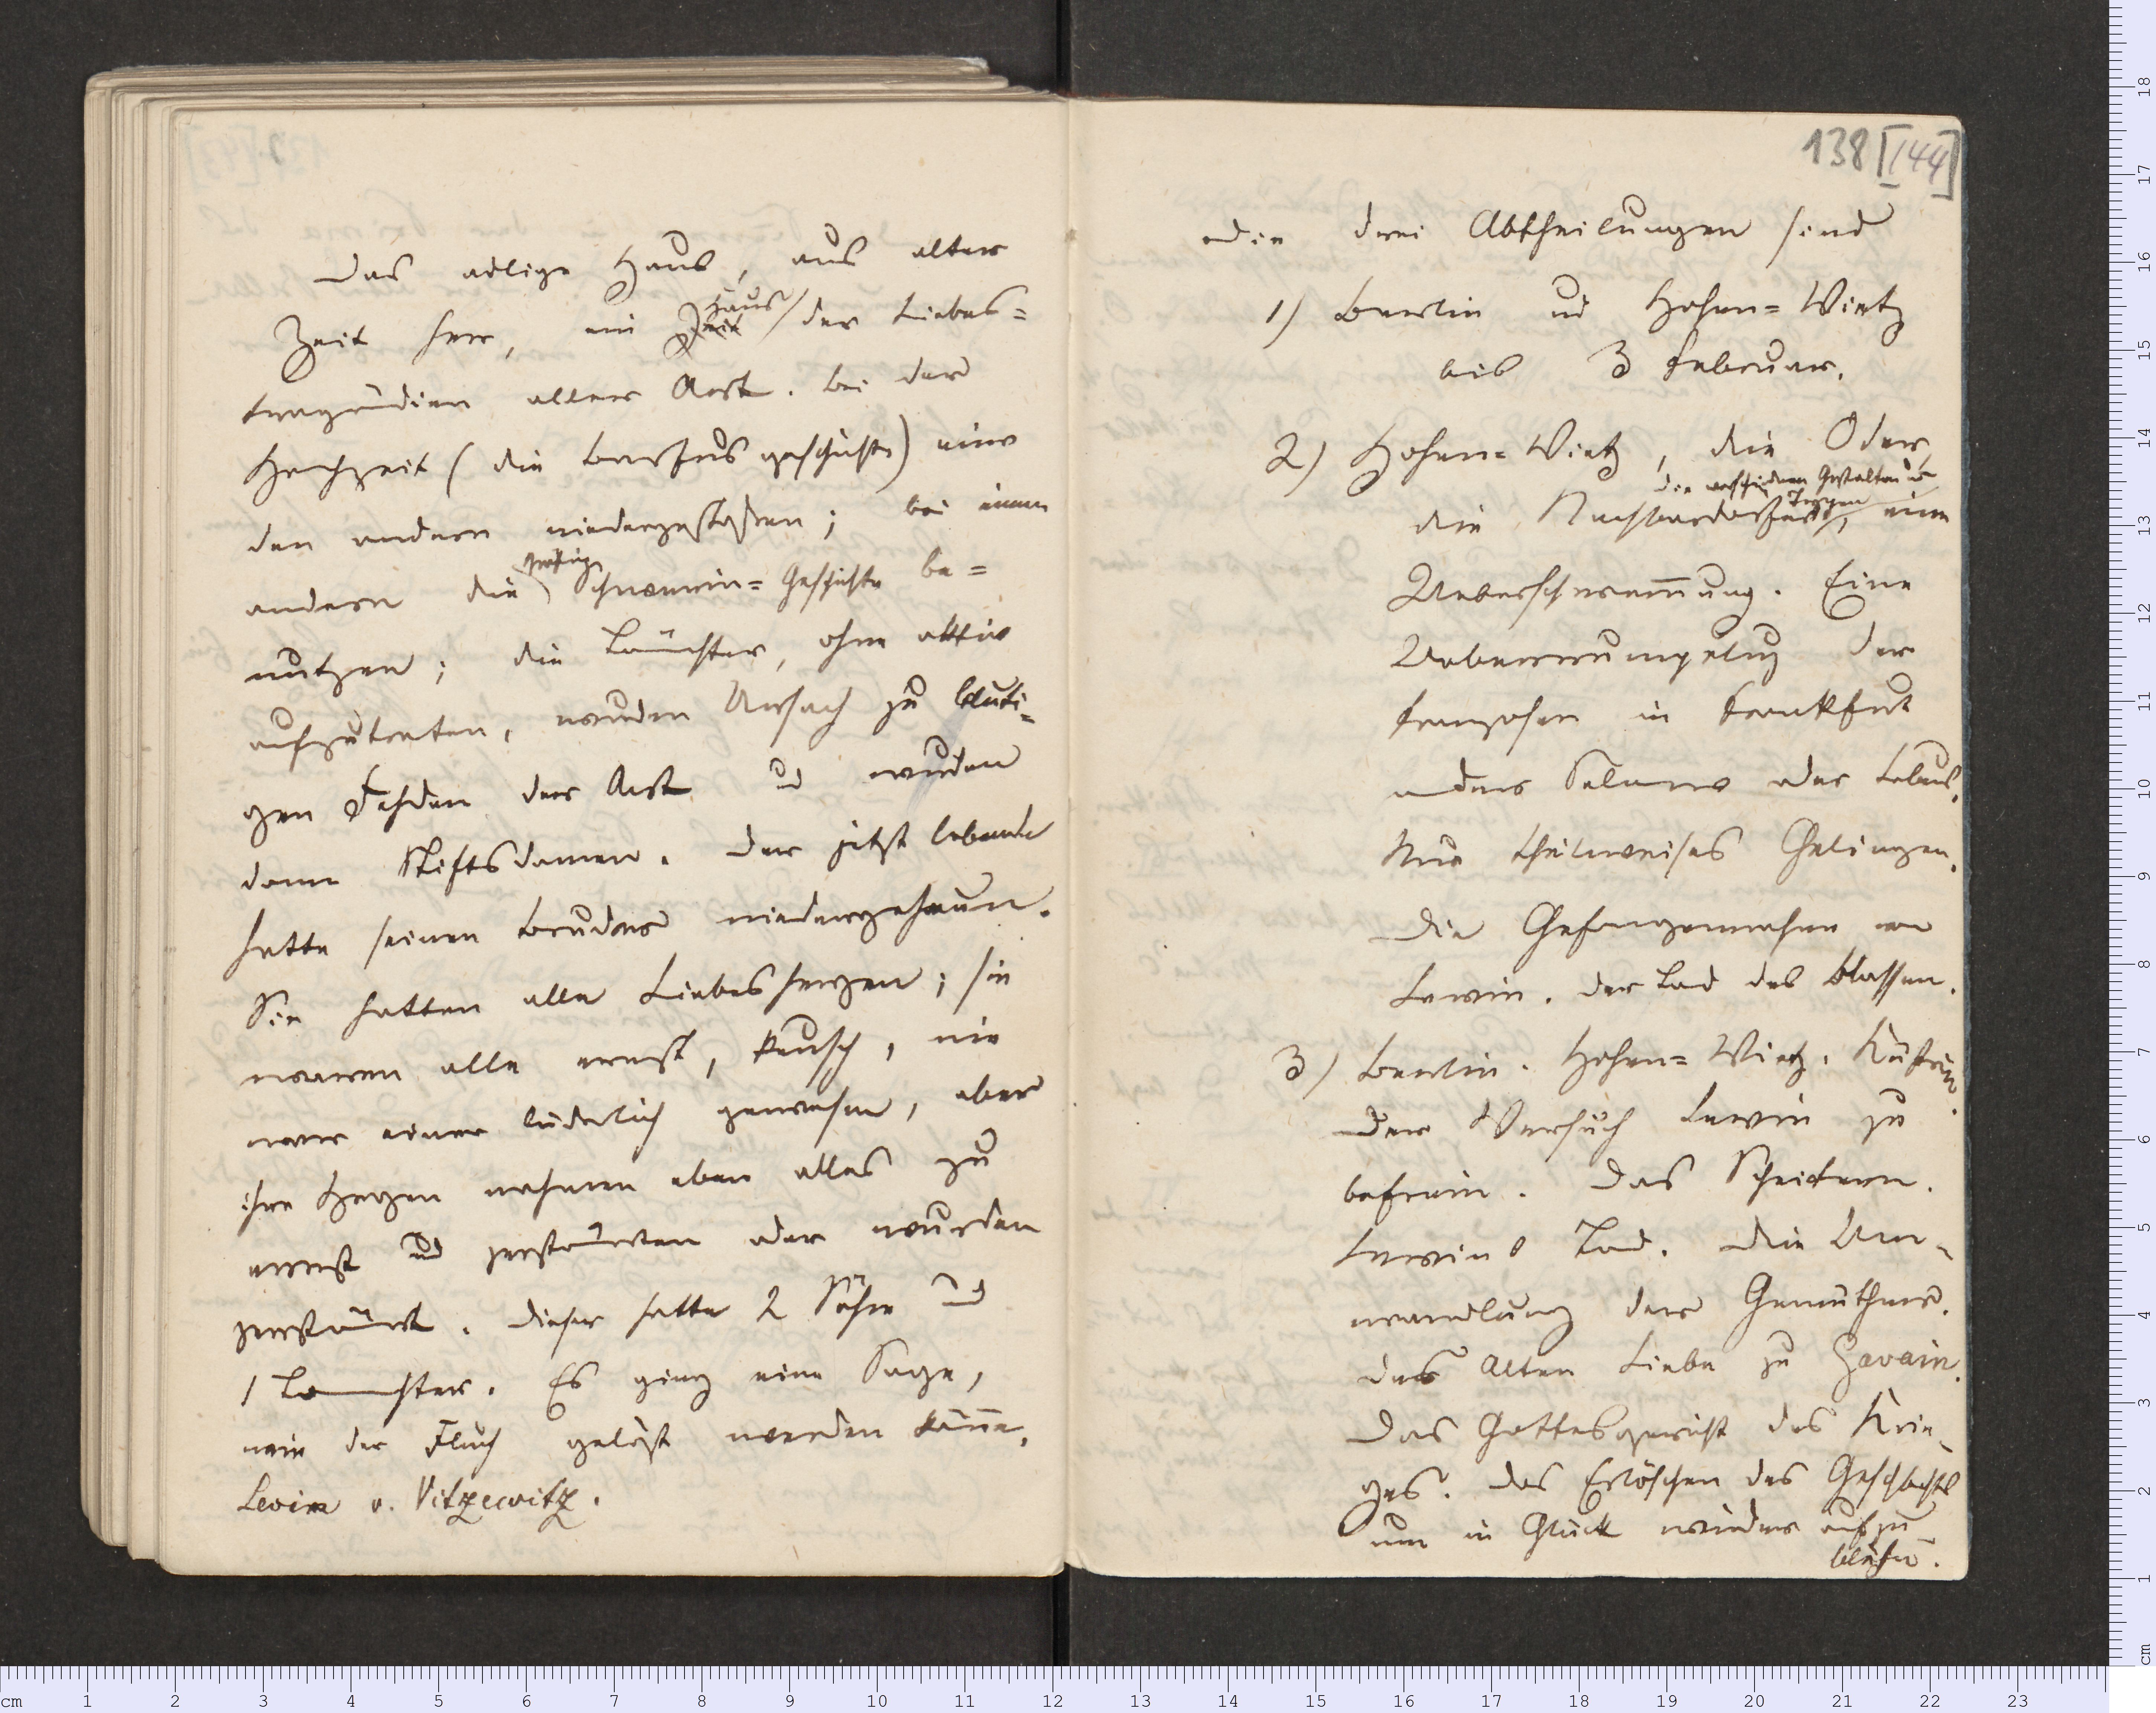 Das adlige Haus, aus alter
Zeit her, ein Zeit Haus der Liebes=
tragödien aller Art. Bei der
Hochzeit (die Barfus geschichte) einer
den andern niedergestoßen; bei einem
andern die Schwerin=Geschichte be=
nutzen; die Töchter, ohne aktiv
aufzutreten, wurden Ursach zu bluti=
gen Fehden der Art und wurden
dann Stiftsdamen. Der jetzt lebende
hatte seinen Bruder niedergehaun.
Sie hatten alle Liebesherzen; sie
waren alle ernst, keusch, nie
war einer lüderlich gewesen, aber
ihre Herzen nahmen eben alles zu
ernst und zerstörten oder wurden
zerstört. Dieser hatte 2 Söhne und
1 Tochter. Es ging eine Sage,
wie der Fluch gelöst werden könne.
Levin v. Vitzewitz.
138 [144]
Die drei Abtheilungen sind
1) Berlin und Hohen=Vietz
bis 3 Februar.
2) Hohen=Vietz, die Oder,
die verschiednen Gestalten u
Typen
die Nachbardörfer, eine
Ueberschwem̅ung. Eine
Ueberrumpelung der
Franzosen in Frankfurt
oder Lebus.
Nur theilweises Gelingen.
Die Gefangennahme von
Lewin. Der Tod des Blassen.
3) Berlin. Hohen=Vietz. Küstrin.
Der Versuch Lewin zu
befrein. Das Scheitern.
Lewins Tod. Die Um=
wandlung der Gemüther.
Des Alten Liebe zu
Das Gottesgericht des Krie=
ges. Das Erlöschen des Geschlechts
um in Glück wieder aufzu=
blühn.